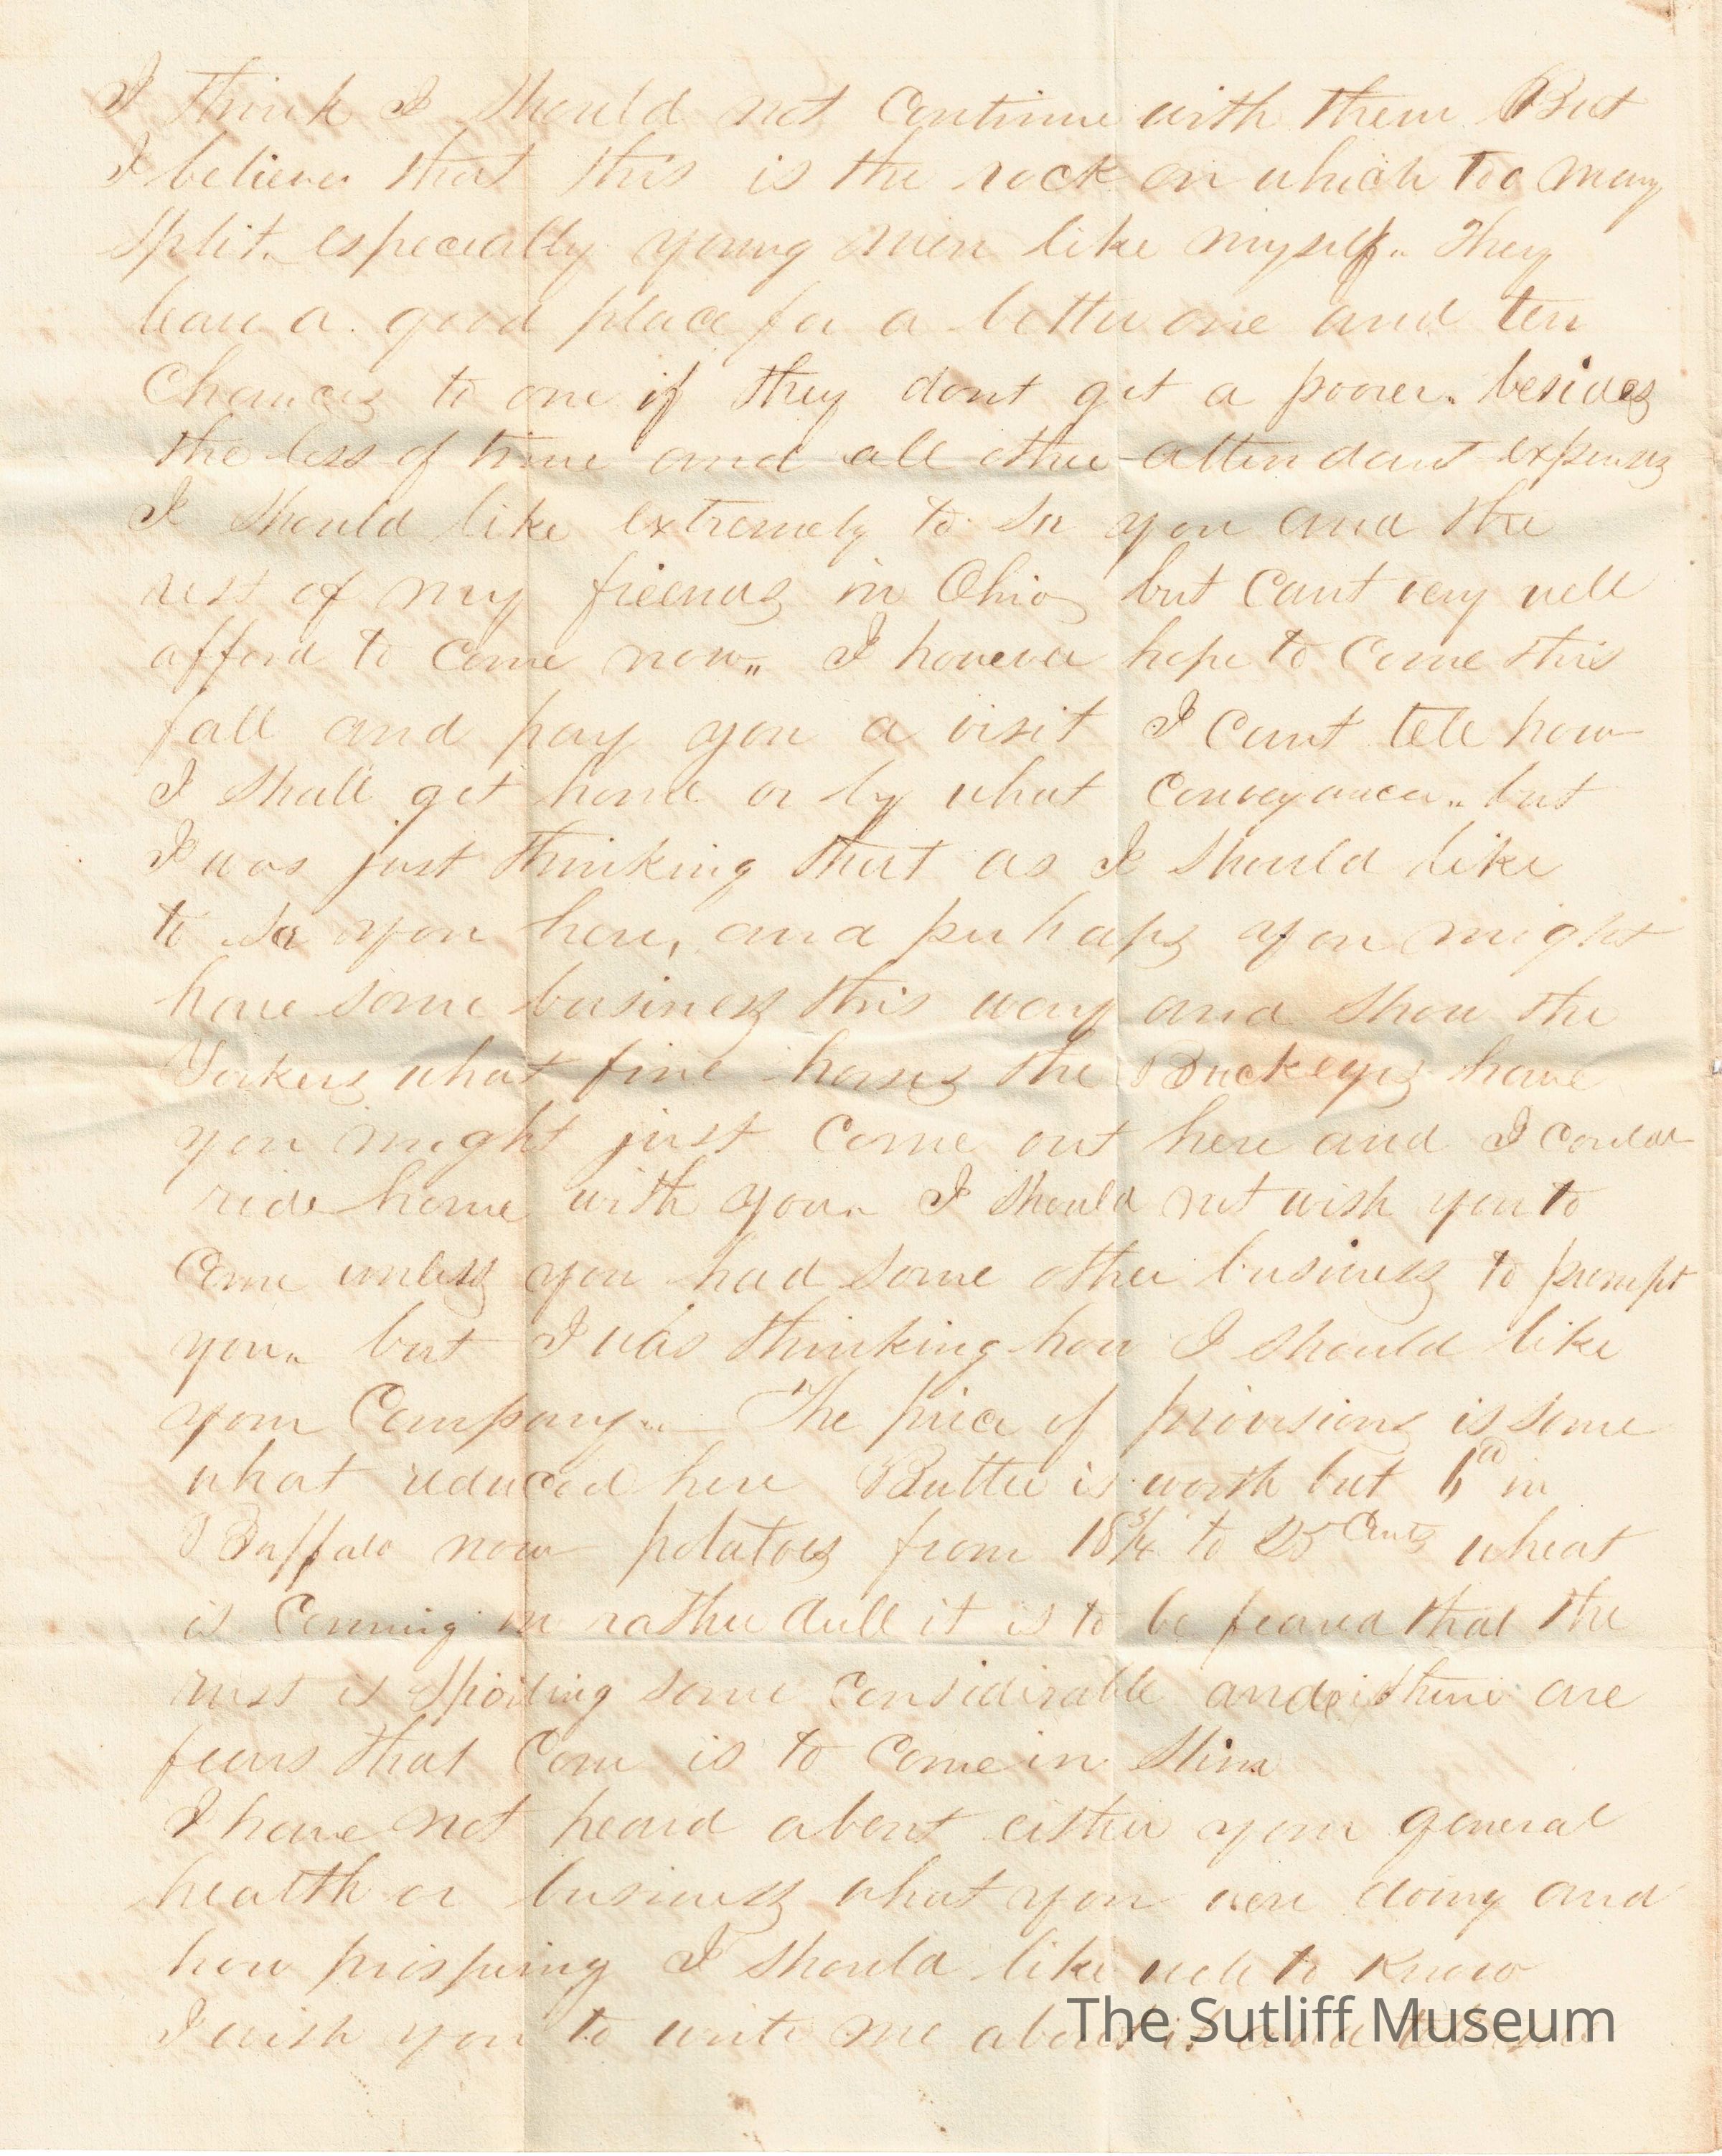 I think I should not Continue with them But
I believe that this is the rock on which too many
split. especially young men like myself. They
leave a good place for a better one and ten
Chances to one if they dont get a poorer. besides
the loss of time and all other attendant expenses
I should like extremely to see you and the
rest of my frieends in Ohio but Cant very well
afford to Come now.. I however hope to Come this
fall and pay you a visit I Cant tell how
I shall get home or by what Conveyance.. but
I was just thinking that as I should like
to see you here, and perhaps you might
have some business this way and show the
Yorkers what fine horses the Buckeyes have
you might just Come out here and I could
ride home with you.. I should not wish you to
Come unless you had some other business to prompt
you.. but I was thinking how I should like
your Company..— The price of provisions is some
what reduced here Butter is worth but 6d in
Buffalo now potatoes from 18¾ to 25 Cents wheat
is Coming in rather dull it is to be feared that the
rust is spoiling some considerable and there are
fears that Corn is to Come in slim
I have not heard about either your general
health or business what you were doing and
how prospering I should like well to know
I wish you to write me about it
The Sutliff Museum